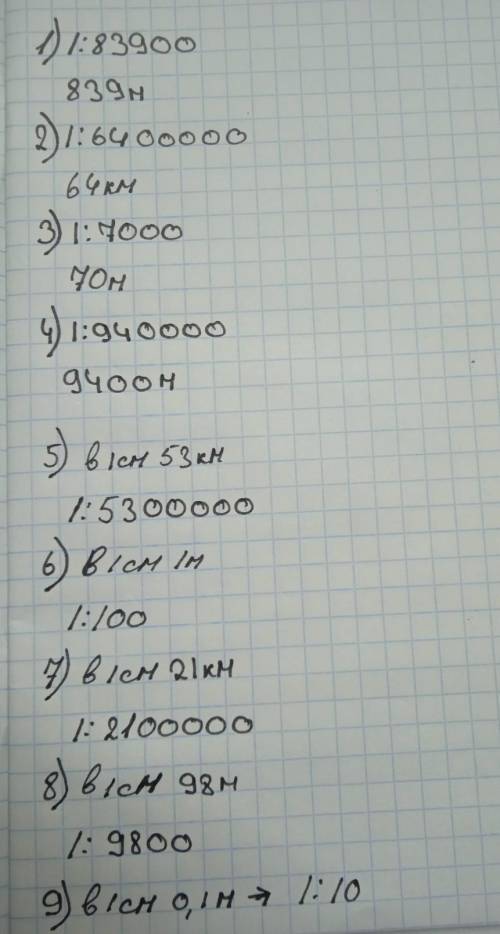 1) 1:83900
839м
2) 1:6400000
64км
3) 1:7000
70м
4) 1:940000
9400м
5) в 1см 53км
1:5300000
6) в 1см 1м
1:100
7) в 1см 21км
1:2100000
8) в 1см 98м
1:9800
9) в 1см 0,1м → 1:10